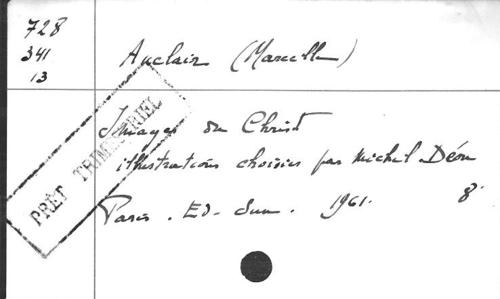 728
341
13
Auclair (Marcelle)
Images du Christ
illustrations choisies par Michel Déon
Paris . Ed. Sun . 1961. 8°
PRÊT TRIMESTRIEL